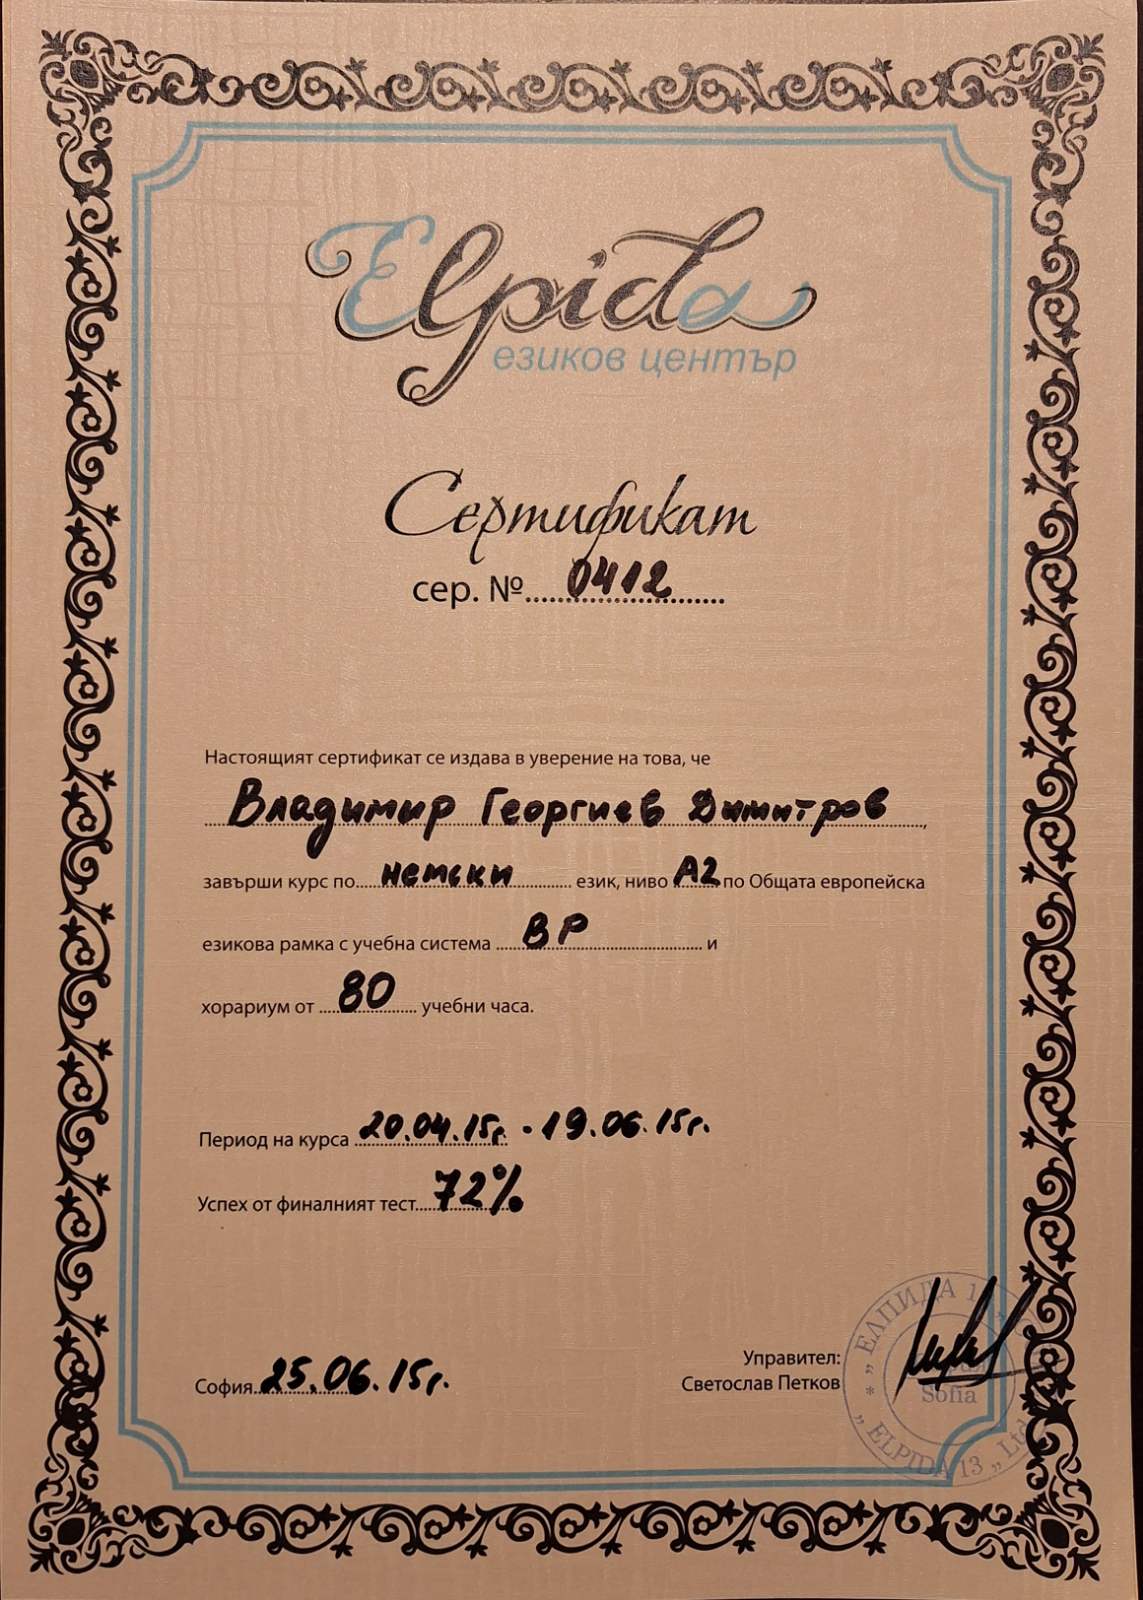 Elpida
езиков център
Сертификат
сер. №....0412........
Настоящият сертификат се издава в уверение на това, че
Владимир Георгиев Димитров,
завърши курс по....немски.......... език, ниво А2 по Общата европейска
езикова рамка с учебна система ....ВР.................. и
хорариум от ....80.... учебни часа.
Период на курса 20.04.15г. - 19.06.15г.
Успех от финалният тест...72%
Управител:
София 25.06.15г.
Светослав Петков
* „ ЕЛПИДА 1
Sofia
„ ELPIDA 13 „ Ltd